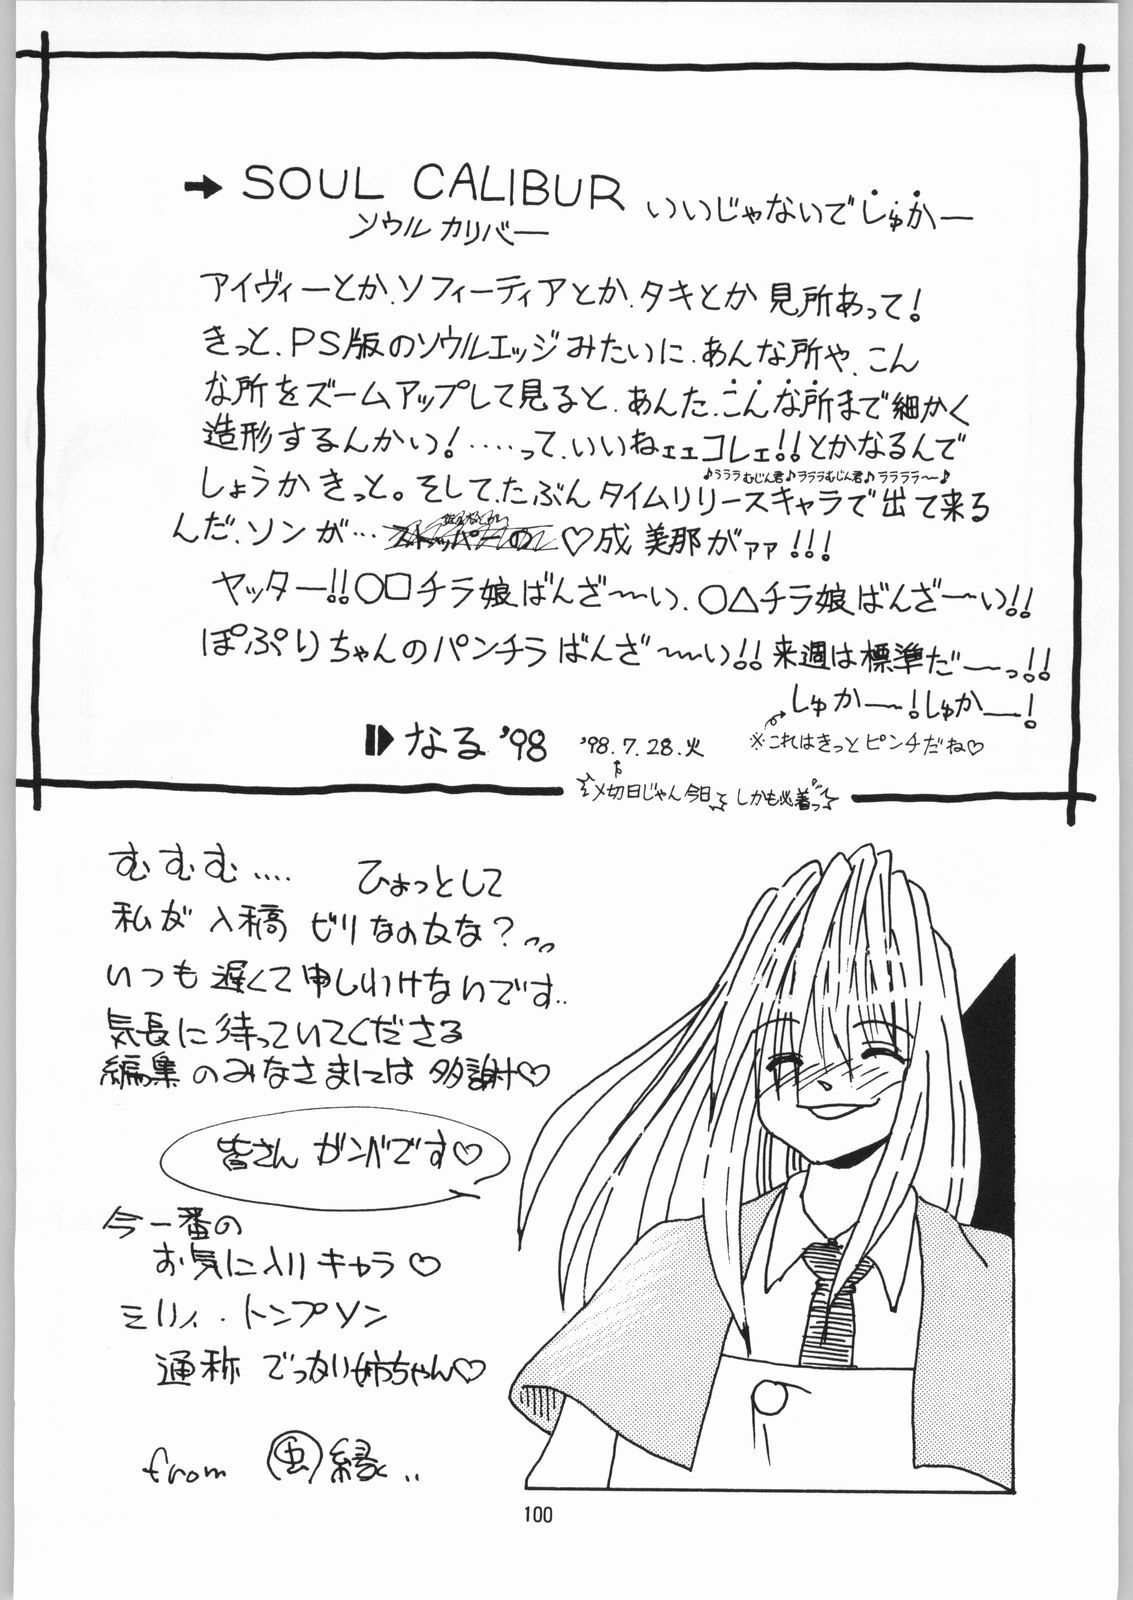 ➡ SOUL CALIBUR いいじゃないでしゅかー
ソウル カリバー
アイヴィーとか、ソフィーティアとか、タキとか見所あって!
きっと、PS版のソウルエッジみたいに、あんな所や、こん
な所をズームアップして見ると、あんた、こんな所まで細かく
造形するんかい!……って、いいねェェコレェ!!とかなるんで
♪ラララむじん君♪ラララむじん君♪ララララ〜♪
しょうかきっと。そして、たぶんタイムリリースキャラで出て来る
んだ、ソンが… ♡成美那がァァ!!!
ヤッター!!○□チラ娘ばんざ〜い、○△チラ娘ばんざ〜い!!
ぽぷりちゃんのパンチラばんざ〜い!!来週は標準だ〜っ!!
しゅか〜!しゅか〜!
※これはきっとピンチだね♡
なる '98 '98.7.28.火
〆切日じゃん今日 しかも必着っ
むむむ…. ひょっとして
私が入稿ビリなの女な?
いつも遅くて申しわけないです..
気長に待っていてくださる
編集のみなさまには多謝♡
皆さんガンバです♡
今一番の
お気に入りキャラ♡
ミリィ・トンプソン
通称でっかい姉ちゃん♡
from 虫縁..
100